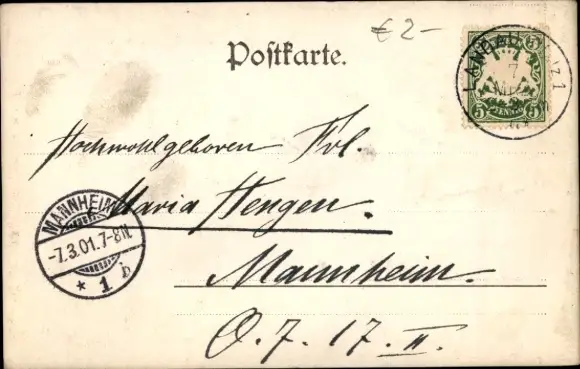 € 2-
Postkarte.
5 5
5 PFENNIG 5
LANDAU
7
Hochwohlgeboren Frl.
Maria Hengen.
Mannheim.
O. 7. 17. II.
MANNHEIM
-7.3.01.7-8N.
* 1 b